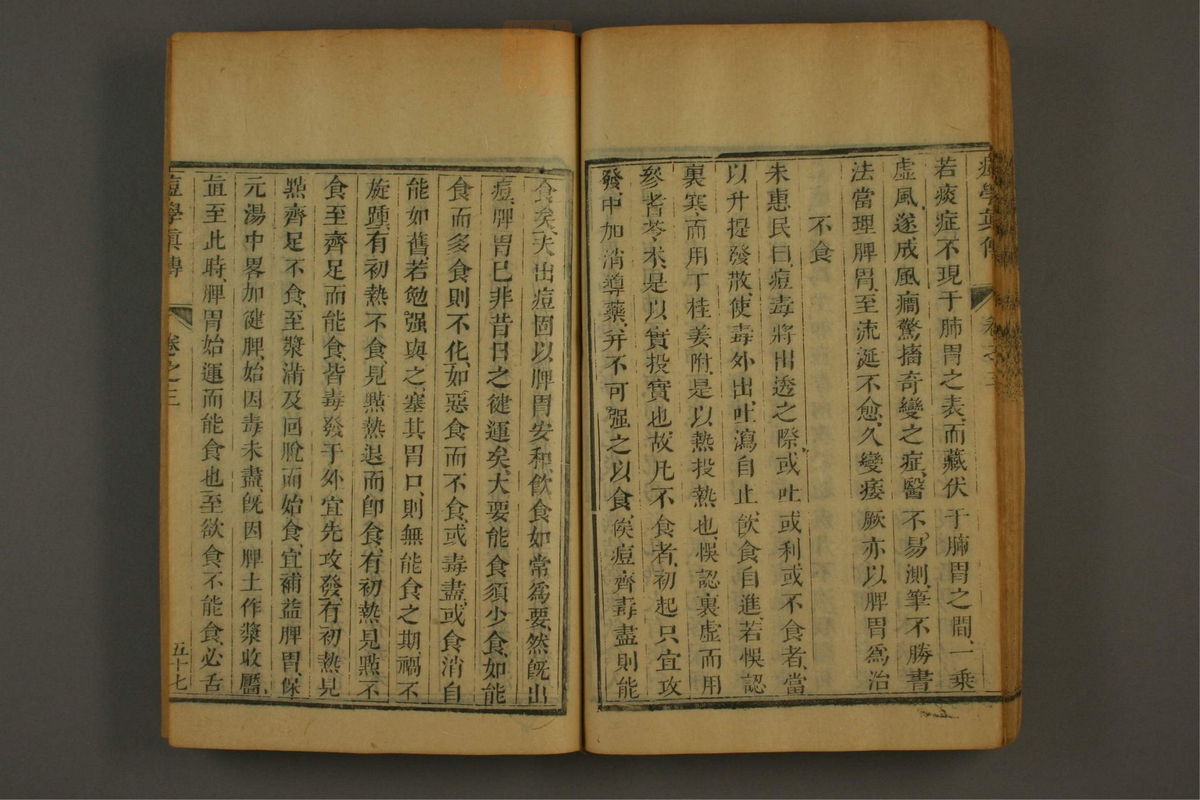 痘學眞傳 卷之三
若痰症不現于肺胃之表而藏伏于肺胃之間一乗
虛風遂成風癎驚搐奇變之症醫不易測筆不勝書
法當理脾胃至流涎不愈久變痿厥亦以脾胃爲治
不食
朱惠民曰痘毒將出透之際或吐或利或不食者當
以升提發散使毒外出吐瀉自止飲食自進若悞認
裏寒而用丁桂姜附是以熱投熱也悞認裏虛而用
參芪苓朮是以實投實也故凡不食者初起只宜攻
發中加消導藥并不可强之以食俟痘齊毒盡則能
食矣夫出痘固以脾胃安和飲食如常爲要然旣出
痘脾胃已非昔日之健運矣大要能食須少食如能
食而多食則不化如惡食而不食或毒盡或食消自
能如舊若勉强與之塞其胃口則無能食之期禍不
旋踵有初熱不食見㸃熱退而卽食有初熱見㸃不
食至齊足而能食皆毒發于外宜先攻發有初熱見
㸃齊足不食至漿滿及回脫而始食宜補益脾胃保
元湯中畧加健脾始因毒未盡旣因脾土作漿收靨
直至此時脾胃始運而能食也至欲食不能食必舌
痘學眞傳 卷之三 五十七